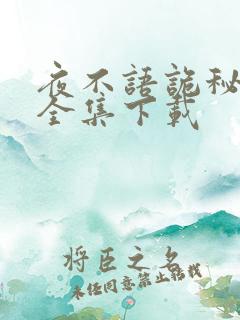 夜不語詭秘
全集下載
將臣之名
未经同意禁止转载